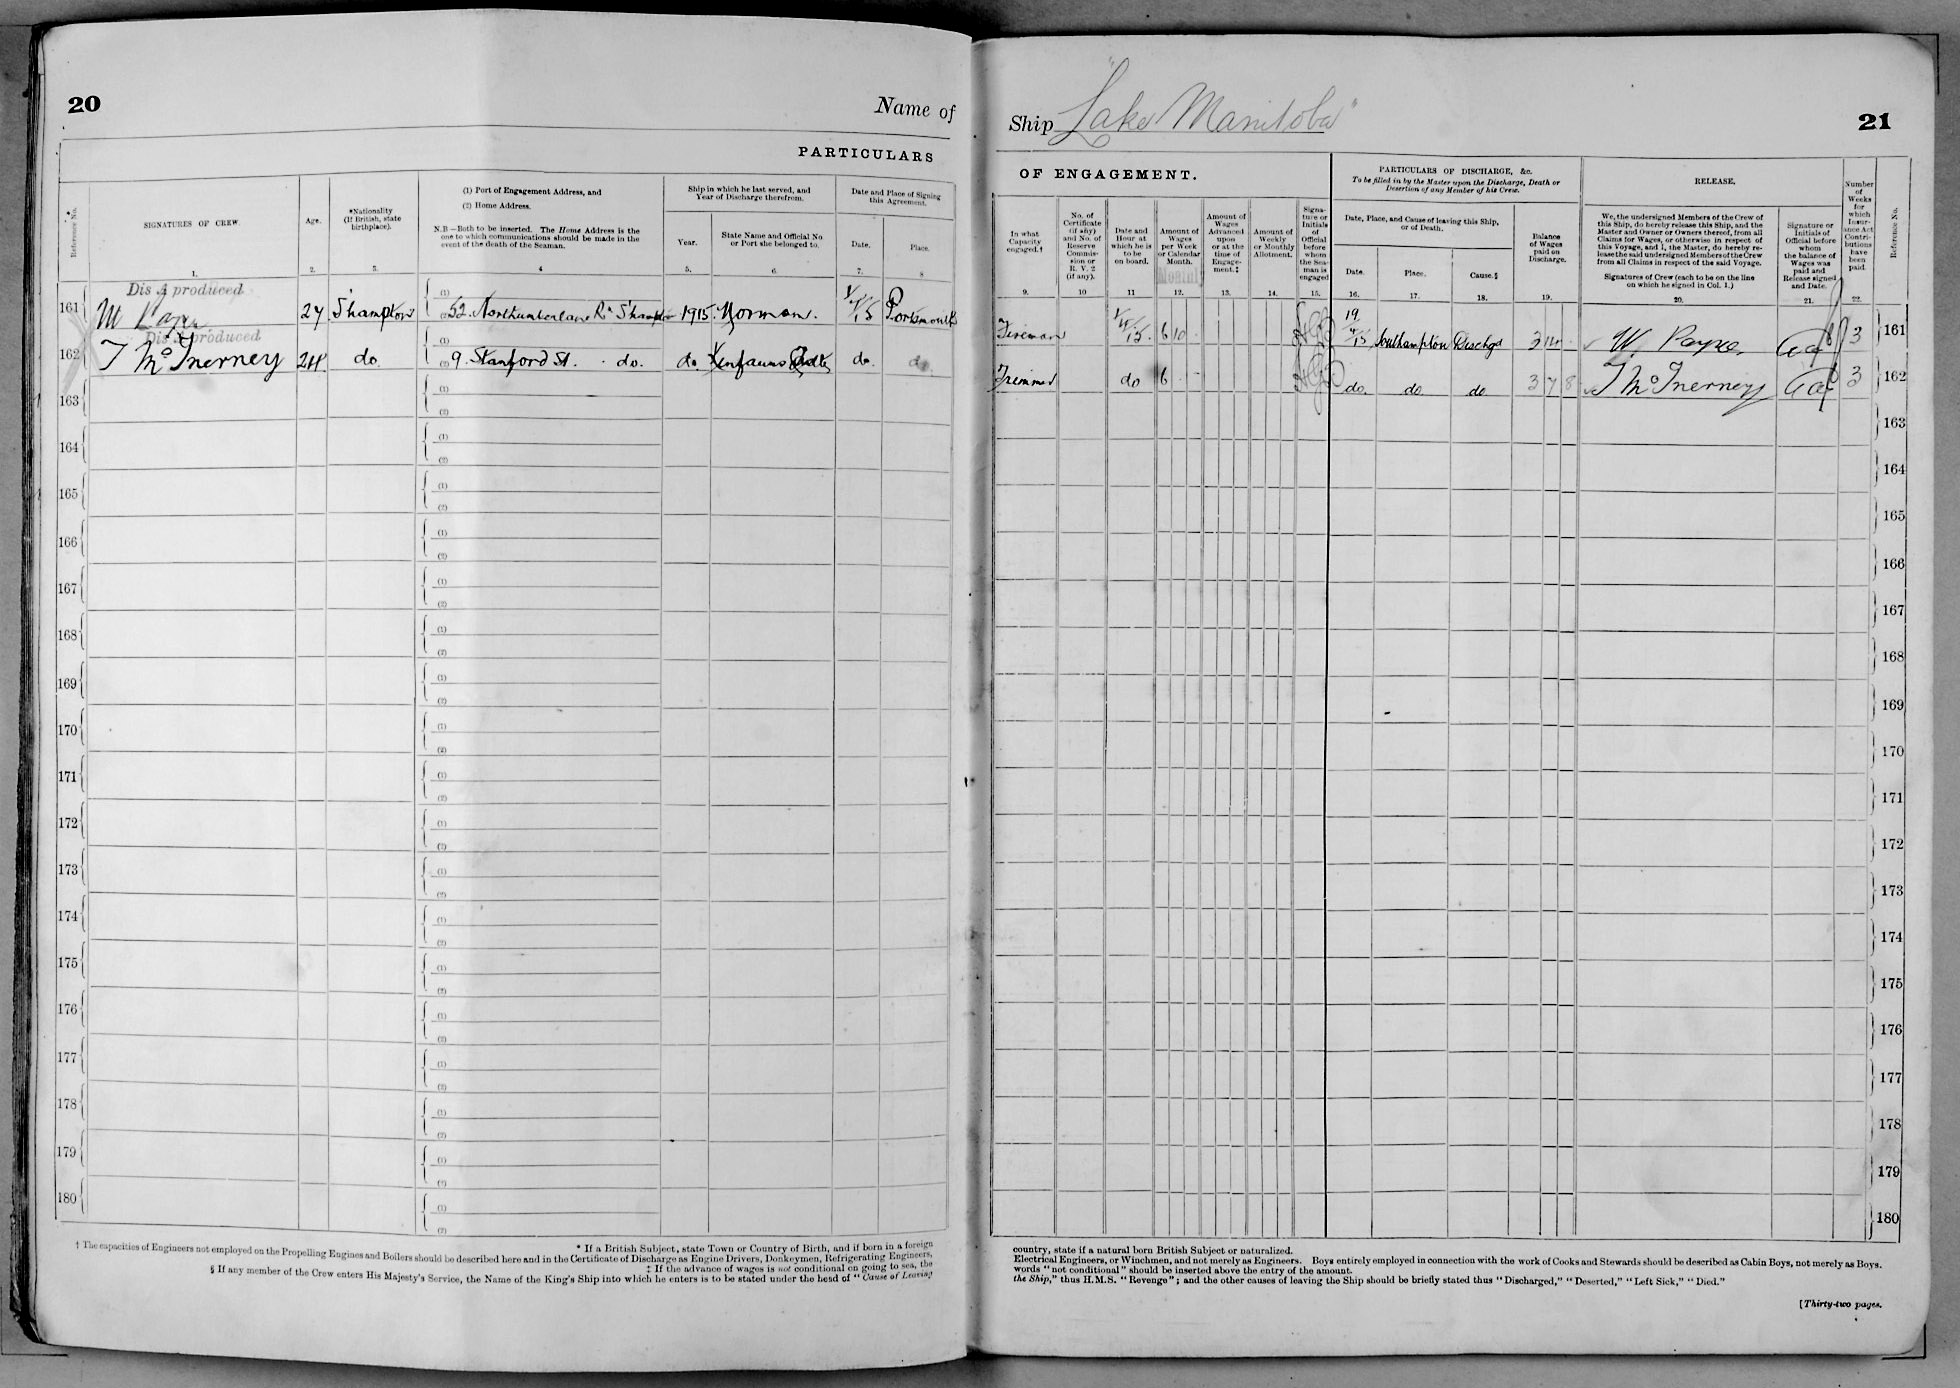 20
Name of
PARTICULARS
Reference No.
SIGNATURES OF CREW.
Age.
*Nationality
(If British, state
birthplace).
(1) Port of Engagement Address, and
(2) Home Address.
N.B.—Both to be inserted. The Home Address is the
one to which communications should be made in the
event of the death of the Seaman.
Ship in which he last served, and
Year of Discharge therefrom.
Year.
State Name and Official No
or Port she belonged to.
Date and Place of Signing
this Agreement.
Date.
Place.
1.
2.
3.
4
5.
6.
7.
8
Dis A produced
161 24 S'hampton 52. Northumberland Rd S'hampton 1915. Norman. Portsmouth
Dis A produced
162 T McInerney 24 do. 9. Stanford St. do. do. Kenfauns Castle do. do.
163
164
165
166
167
168
169
170
171
172
173
174
175
176
177
178
179
180
* If a British Subject, state Town or Country of Birth, and if born in a foreign
† The capacities of Engineers not employed on the Propelling Engines and Boilers should be described here and in the Certificate of Discharge as Engine Drivers, Donkeymen, Refrigerating Engineers,
‡ If the advance of wages is not conditional on going to sea, the
§ If any member of the Crew enters His Majesty's Service, the Name of the King's Ship into which he enters is to be stated under the head of "Cause of Leaving
Ship "Lake Manitoba"
21
OF ENGAGEMENT.
PARTICULARS OF DISCHARGE, &c.
To be filled in by the Master upon the Discharge, Death or
Desertion of any Member of his Crew.
RELEASE.
In what
Capacity
engaged.†
No. of
Certificate
(if any)
and No. of
Reserve
Commis-
sion or
R. V. 2
(if any).
Date and
Hour at
which he is
to be
on board.
Amount of
Wages
per Week
or Calendar
Month.
Amount of
Wages
Advanced
upon
or at the
time of
Engage-
ment.‡
Amount of
Weekly
or Monthly
Allotment.
Signa-
ture or
Initials
of
Official
before
whom
the Sea-
man is
engaged
Date, Place, and Cause of leaving this Ship,
or of Death.
Date.
Place.
Cause.§
Balance
of Wages
paid on
Discharge.
We, the undersigned Members of the Crew of
this Ship, do hereby release this Ship, and the
Master and Owner or Owners thereof, from all
Claims for Wages, or otherwise in respect of
this Voyage, and I, the Master, do hereby re-
lease the said undersigned Members of the Crew
from all Claims in respect of the said Voyage.
Signatures of Crew (each to be on the line
on which he signed in Col. 1.)
Signature or
Initials of
Official before
whom
the balance of
Wages was
paid and
Release signed
and Date.
Number
of
Weeks
for
which
Insur-
ance Act
Contri-
butions
have
been
paid.
Reference No.
9.
10
11
12.
13.
14.
15.
16.
17.
18.
19.
20.
21.
22.
Fireman 6 10 Southampton Dischgd W. Payne 3 161
Trimmer do 6 do. do. do 3 7 8 T McInerney 3 162
163
164
165
166
167
168
169
170
171
172
173
174
175
176
177
178
179
180
country, state if a natural born British Subject or naturalized.
Electrical Engineers, or Winchmen, and not merely as Engineers. Boys entirely employed in connection with the work of Cooks and Stewards should be described as Cabin Boys, not merely as Boys.
words "not conditional" should be inserted above the entry of the amount.
the Ship," thus H.M.S. "Revenge"; and the other causes of leaving the Ship should be briefly stated thus "Discharged," "Deserted," "Left Sick," "Died."
[Thirty-two pages.